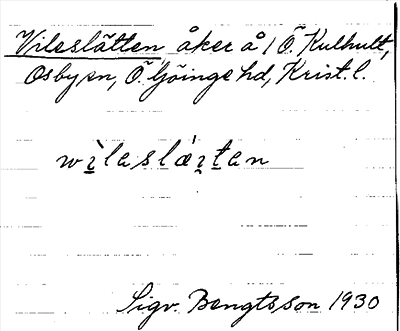 Vileslätten åker å 1 Ö. Kulhult,
Osby sn, Ö. Göinge hd, Krist. l.
wìlaslǽıtan
Sigv. Bengtsson 1930